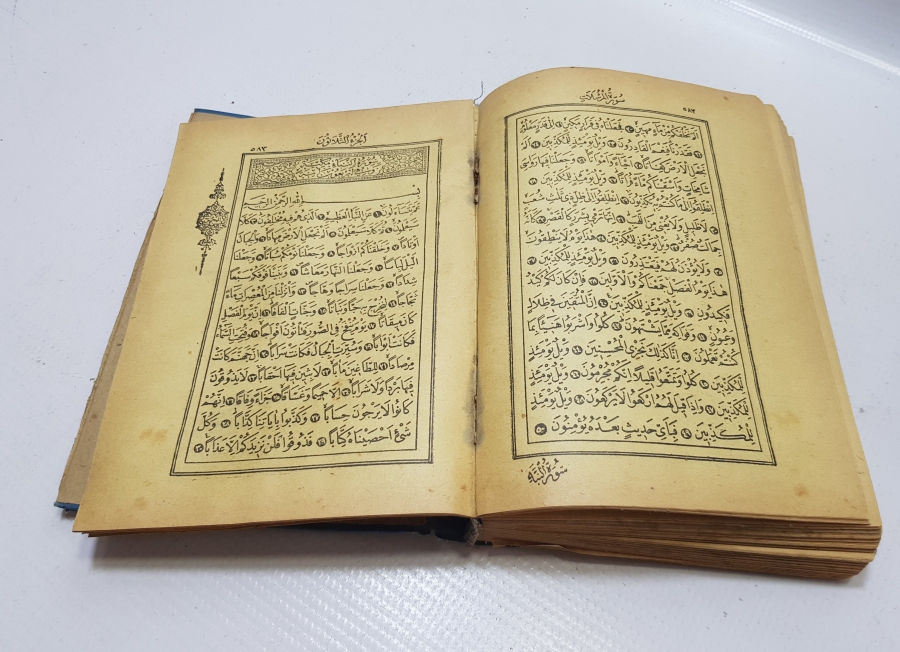 سورة المرسلات
٥٨٢
اَلَمْ نَخْلُقْكُمْ مِنْ مَاءٍ مَهِينٍ ٢٠ فَجَعَلْنَاهُ فِي قَرَارٍ مَكِينٍ ٢١ اِلٰى قَدَرٍ مَعْلُومٍ
٢٢ فَقَدَرْنَا فَنِعْمَ الْقَادِرُونَ ٢٣ وَيْلٌ يَوْمَئِذٍ لِلْمُكَذِّبِينَ ٢٤ اَلَمْ
نَجْعَلِ الْاَرْضَ كِفَاتًا ٢٥ اَحْيَاءً وَاَمْوَاتًا ٢٦ وَجَعَلْنَا فِيهَا رَوَاسِيَ
شَامِخَاتٍ وَاَسْقَيْنَاكُمْ مَاءً فُرَاتًا ٢٧ وَيْلٌ يَوْمَئِذٍ لِلْمُكَذِّبِينَ ٢٨
اِنْطَلِقُوا اِلٰى مَا كُنْتُمْ بِهِ تُكَذِّبُونَ ٢٩ اِنْطَلِقُوا اِلٰى ظِلٍّ ذِي ثَلٰثِ شُعَبٍ
٣٠ لَا ظَلِيلٍ وَلَا يُغْنِي مِنَ اللَّهَبِ ٣١ اِنَّهَا تَرْمِي بِشَرَرٍ كَالْقَصْرِ ٣٢ كَاَنَّهُ
جِمَالَتٌ صُفْرٌ ٣٣ وَيْلٌ يَوْمَئِذٍ لِلْمُكَذِّبِينَ ٣٤ هٰذَا يَوْمُ لَا يَنْطِقُونَ
٣٥ وَلَا يُؤْذَنُ لَهُمْ فَيَعْتَذِرُونَ ٣٦ وَيْلٌ يَوْمَئِذٍ لِلْمُكَذِّبِينَ ٣٧
هٰذَا يَوْمُ الْفَصْلِ جَمَعْنَاكُمْ وَالْاَوَّلِينَ ٣٨ فَاِنْ كَانَ لَكُمْ كَيْدٌ
فَكِيدُونِ ٣٩ وَيْلٌ يَوْمَئِذٍ لِلْمُكَذِّبِينَ ٤٠ اِنَّ الْمُتَّقِينَ فِي ظِلَالٍ
وَعُيُونٍ ٤١ وَفَوَاكِهَ مِمَّا يَشْتَهُونَ ٤٢ كُلُوا وَاشْرَبُوا هَنِيئًا بِمَا
كُنْتُمْ تَعْمَلُونَ ٤٣ اِنَّا كَذٰلِكَ نَجْزِي الْمُحْسِنِينَ ٤٤ وَيْلٌ يَوْمَئِذٍ
لِلْمُكَذِّبِينَ ٤٥ كُلُوا وَتَمَتَّعُوا قَلِيلًا اِنَّكُمْ مُجْرِمُونَ ٤٦ وَيْلٌ يَوْمَئِذٍ
لِلْمُكَذِّبِينَ ٤٧ وَاِذَا قِيلَ لَهُمُ ارْكَعُوا لَا يَرْكَعُونَ ٤٨ وَيْلٌ يَوْمَئِذٍ
لِلْمُكَذِّبِينَ ٤٩ فَبِاَيِّ حَدِيثٍ بَعْدَهُ يُؤْمِنُونَ ٥٠
سورة النبأ
الجزء الثلاثون
٥٨٣
بِسْمِ اللهِ الرَّحْمٰنِ الرَّحِيمِ
عَمَّ يَتَسَاءَلُونَ ١ عَنِ النَّبَاِ الْعَظِيمِ ٢ اَلَّذِي هُمْ فِيهِ مُخْتَلِفُونَ ٣ كَلَّا
سَيَعْلَمُونَ ٤ ثُمَّ كَلَّا سَيَعْلَمُونَ ٥ اَلَمْ نَجْعَلِ الْاَرْضَ مِهَادًا ٦ وَالْجِبَالَ
اَوْتَادًا ٧ وَخَلَقْنَاكُمْ اَزْوَاجًا ٨ وَجَعَلْنَا نَوْمَكُمْ سُبَاتًا ٩ وَجَعَلْنَا
الَّيْلَ لِبَاسًا ١٠ وَجَعَلْنَا النَّهَارَ مَعَاشًا ١١ وَبَنَيْنَا فَوْقَكُمْ سَبْعًا
شِدَادًا ١٢ وَجَعَلْنَا سِرَاجًا وَهَّاجًا ١٣ وَاَنْزَلْنَا مِنَ الْمُعْصِرَاتِ مَاءً
ثَجَّاجًا ١٤ لِنُخْرِجَ بِهِ حَبًّا وَنَبَاتًا ١٥ وَجَنَّاتٍ اَلْفَافًا ١٦ اِنَّ يَوْمَ الْفَصْلِ
كَانَ مِيقَاتًا ١٧ يَوْمَ يُنْفَخُ فِي الصُّورِ فَتَأْتُونَ اَفْوَاجًا ١٨ وَفُتِحَتِ السَّمَاءُ
فَكَانَتْ اَبْوَابًا ١٩ وَسُيِّرَتِ الْجِبَالُ فَكَانَتْ سَرَابًا ٢٠ اِنَّ جَهَنَّمَ كَانَتْ
مِرْصَادًا ٢١ لِلطَّاغِينَ مَاٰبًا ٢٢ لَابِثِينَ فِيهَا اَحْقَابًا ٢٣ لَا يَذُوقُونَ
فِيهَا بَرْدًا وَلَا شَرَابًا ٢٤ اِلَّا حَمِيمًا وَغَسَّاقًا ٢٥ جَزَاءً وِفَاقًا ٢٦ اِنَّهُمْ
كَانُوا لَا يَرْجُونَ حِسَابًا ٢٧ وَكَذَّبُوا بِاٰيَاتِنَا كِذَّابًا ٢٨ وَكُلَّ
شَيْءٍ اَحْصَيْنَاهُ كِتَابًا ٢٩ فَذُوقُوا فَلَنْ نَزِيدَكُمْ اِلَّا عَذَابًا ٣٠